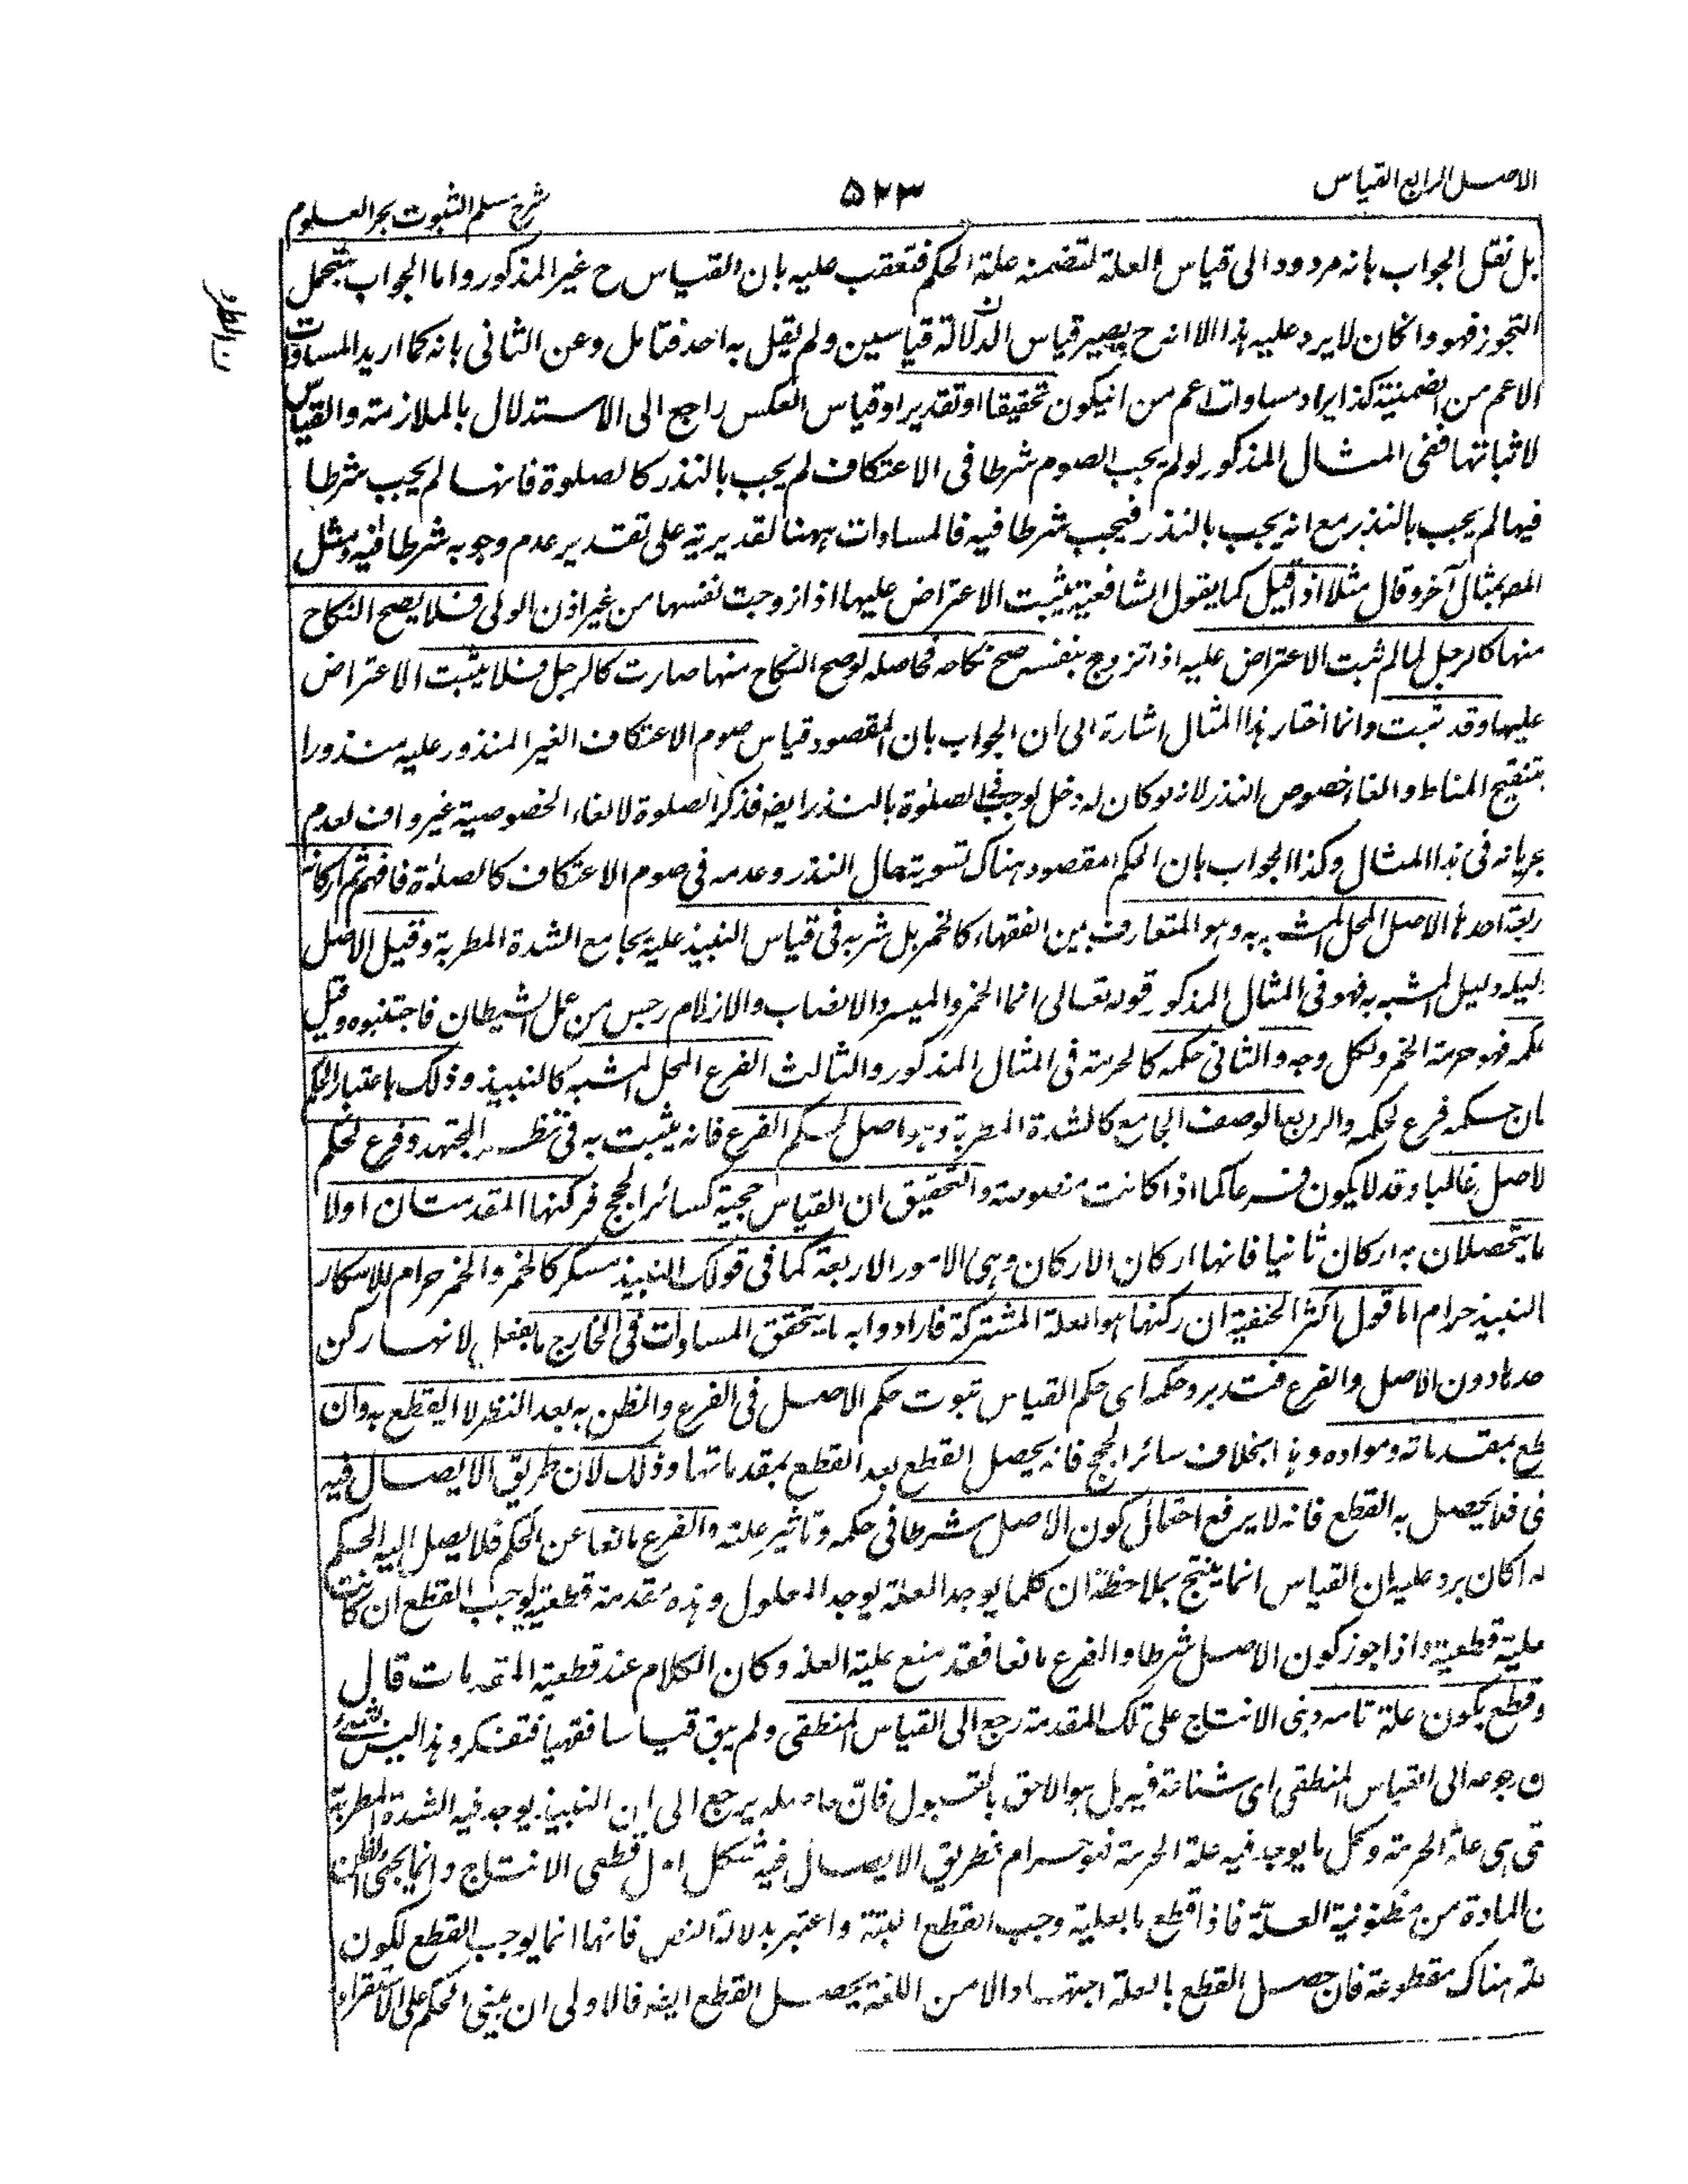 الاصل الرابع القياس
۵۲۳
شرح مسلم الثبوت بحر العلوم
بل نقل الجواب بانه مردود الى قياس العلة لتضمنه علة الحكم فتعقب عليه بان القياس ح غير المذكور واما الجواب بتحمل
التجوز فهو وانكان لا يرد عليه هذا الا انه ح يصير قياس الدلالة قياسين ولم يقل به احد فتامل وعن الثانى بانه كما اريد المساوات
الاعم من الضمنية كذا يراد مساوات اعم من انيكون تحقيقا او تقديرا وقياس العكس راجع الى الاستدلال بالملازمة والقياس
لاثباتها ففى المثال المذكور لو لم يجب الصوم شرطا فى الاعتكاف لم يجب بالنذر كالصلوة فانها لم يجب شرطا
فيها لم يجب بالنذر مع انه يجب بالنذر فيجب شرطا فيه فالمساوات ههنا تقديرية على تقدير عدم وجوبه شرطا فيه ومثل
المص بمثال آخر وقال مثلا اذا قيل كما يقول الشافعية يثبت الاعتراض عليها اذا زوجت نفسها من غير اذن الولى فلا يصح النكاح
منها كالرجل لما لم يثبت الاعتراض عليه اذا تزوج بنفسه صح نكاحه فحاصله لو صح النكاح منها صارت كالرجل فلا يثبت الاعتراض
عليها وقد ثبت وانما اختار هذا المثال اشارة الى ان الجواب بان المقصود قياس صوم الاعتكاف الغير المنذور عليه منذورا
بتنقيح المناط والغاء خصوص النذر لانه لو كان له دخل لوجب فى الصلوة بالنذر ايض فذكر الصلوة لالغاء الخصوصية غير واف لعدم
جريانه فى هذا المثال وكذا الجواب بان الحكم المقصود هناك تسوية حال النذر وعدمه فى صوم الاعتكاف كالصلوة فافهم ثم اركانه
ربعة احدها الاصل المحل المشبه به وهو المتعارف بين الفقهاء كالخمر بل شربه فى قياس النبيذ عليه بجامع الشدة المطربة وقيل الاصل
دليله دليل المشبه به فهو فى المثال المذكور قوله تعالى انما الخمر والميسر والانصاب والازلام رجس من عمل الشيطان فاجتنبوه وقيل
حكمه فهو حرمة الخمر ولكل وجه والثانى حكمه كالحرمة فى المثال المذكور والثالث الفرع المحل المشبه كالنبيذ وذلك باعتبار الحكم
فان حكمه فرع لحكمه والرابع الوصف الجامع كالشدة المطربة وهو اصل لحكم الفرع فانه يثبت به فى نظر المجتهد وفرع لحكم
لاصل غالبا وقد لا يكون فرعا كما اذا كانت منصوصة والتحقيق ان القياس حجية كسائر الحجج فركنها المقدمتان اولا
ما يتحصلان به اركان ثانيا فانها اركان الاركان وهى الامور الاربعة كما فى قولك النبيذ مسكر كالخمر والخمر حرام للاسكار
النبيذ حرام اما قول اكثر الحنفية ان ركنها هو العلة المشتركة فارادوا به ما يتحقق المساوات فى الخارج بالفعل لانها ركن
حدها دون الاصل والفرع فتدبر وحكمه اى حكم القياس ثبوت حكم الاصل فى الفرع والظن به بعد النظر لا القطع به وان
طع بمقدماته ومواده وهذا بخلاف سائر الحجج فانه يحصل القطع بعد القطع بمقدماتها وذلك لان طريق الايصال فيه
نى فلا يحصل به القطع فانه لا يرفع احتمال كون الاصل شرطا فى حكمه وتاثير علته والفرع مانعا عن الحكم فلا يصل اليه الحكم
لما كان يرد عليه ان القياس انما ينتج بملاحظة ان كلما يوجد العلة يوجد المعلول وهذه مقدمة قطعية يوجب القطع ان كانت
علية قطعية واذا جوز كون الاصل شرطا والفرع مانعا فقد منع علية العلة وكان الكلام عند قطعية المقدمات قال
وقطع بكون علة تامه وبنى الانتاج على تلك المقدمة رجع الى القياس المنطقى ولم يبق قياسا فقهيا فتفكر وهذا ليس بشئ
ن رجوعه الى القياس المنطقى اى شناعة فيه بل هو الاحق بالقبول فان حاصله يرجع الى ان النبيذ يوجد فيه الشدة المطربة
تى هى علة الحرمة وكل ما يوجد فيه علة الحرمة فهو حرام فطريق الايصال فيه شكل اول قطعى الانتاج وانما يجئ الظن
ن المادة من مظنونية العلة فاذا قطع بالعلية وجب القطع البتة واعتبر بدلالة النص فانها انما يوجب القطع لكون
علة هناك مقطوعة فان حصل القطع بالعلة اجتهادا لا من اللغة يحصل القطع ايضه فالاولى ان يبنى الحكم على الاستقراء